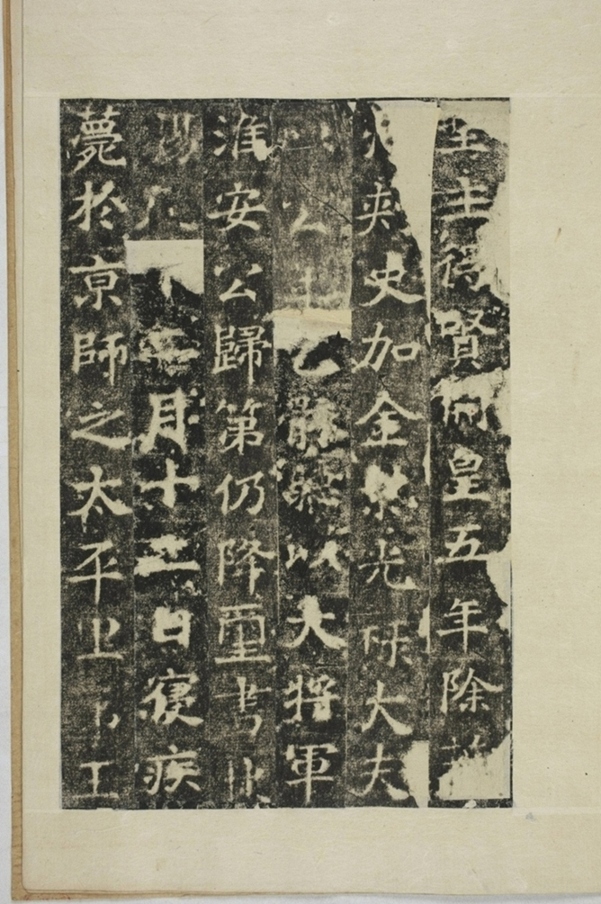 主得賢開皇五年除
史加金紫光祿大夫
公乞骸骨以大將軍
淮安公歸第仍降璽書
二月十二日寑疾
薨於京師之太平里